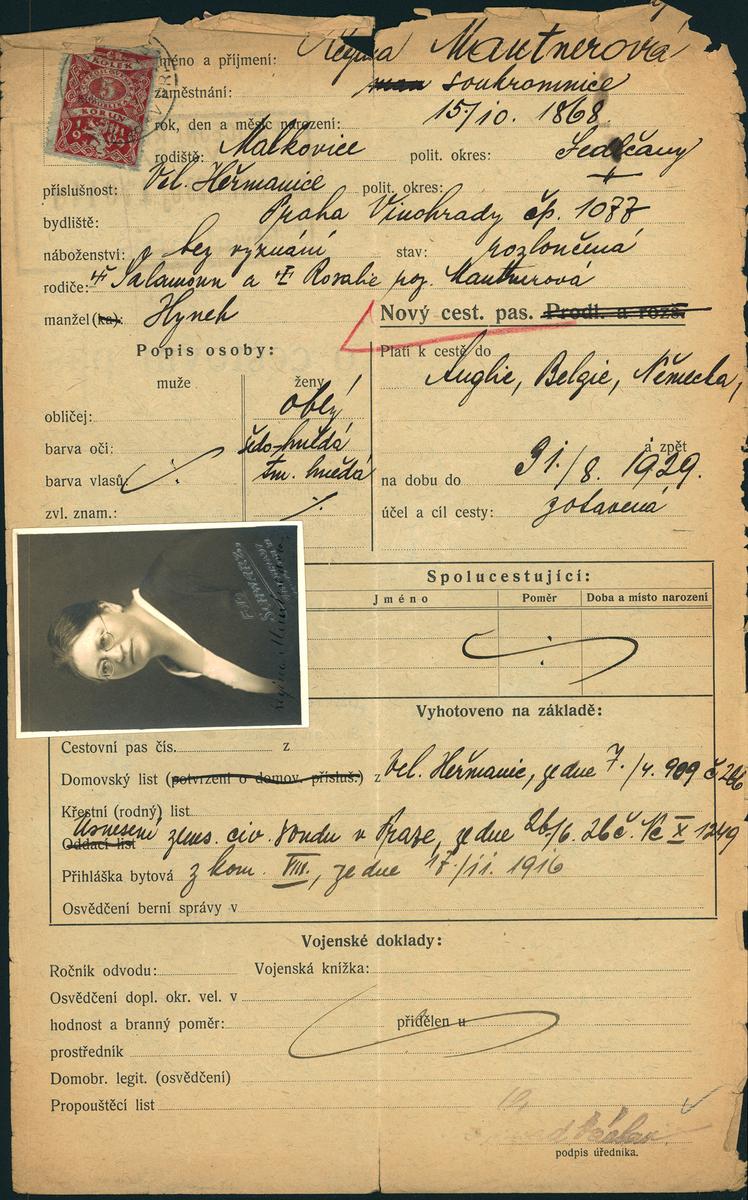 jméno a příjmení: Regina Mautnerová
zaměstnání: soukromnice
rok, den a měsíc narození: 15/10. 1868.
rodiště: Malkovice polit. okres: Sedlčany
příslušnost: Vel. Heřmanice polit. okres:
bydliště: Praha Vinohrady čp. 1077
náboženství: bez vyznání stav: rozloučená
rodiče: Salamoun a Rosalie roz. Mautnerová
manžel (ka): Hynek
Nový cest. pas. Prodl. a rozš.
Popis osoby:
Platí k cestě do
muže ženy
Anglie, Belgie, Německa,
obličej: oblý
barva očí: šedo-hnědá
a zpět
barva vlasů: tm. hnědá
na dobu do 31./8. 1929.
zvl. znam.:
účel a cíl cesty: zotavená
Spolucestující:
Jméno Poměr Doba a místo narození
Vyhotoveno na základě:
Cestovní pas čís. z
Domovský list (potvrzení o domov. přísluš.) z Vel. Heřmanic, ze dne 7./4. 909 č 266
Křestní (rodný) list
Oddací list Usnesení zems. civ. soudu v Praze, ze dne 26/6. 26 č. Nc X 1249
Přihláška bytová z kom. VIII., ze dne 17/11. 1916
Osvědčení berní správy v
Vojenské doklady:
Ročník odvodu: Vojenská knížka:
Osvědčení dopl. okr. vel. v
hodnost a branný poměr: přidělen u
prostředník
Domobr. legit. (osvědčení)
Propouštěcí list
podpis úředníka.
KOLEK
5
KORUN
FOTO
SCHWARZ
Regina Mautnerová